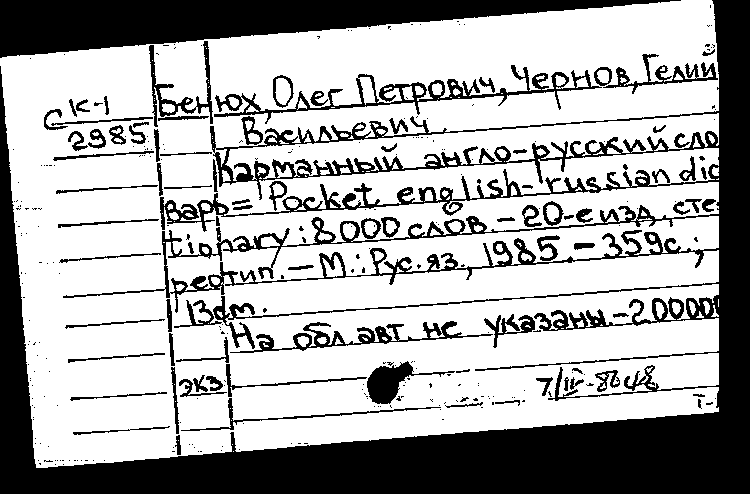 С К-1
2985
Бенюх, Олег Петрович, Чернов, Гелий
Васильевич.
Карманный англо-русский сло
варь = Pocket english-russian dic
tionary : 8000 слов. – 20-е изд., сте-
реотип. – М.: Рус. яз., 1985. – 359 с.;
13 см.
На обл. авт. не указаны. – 200000
экз